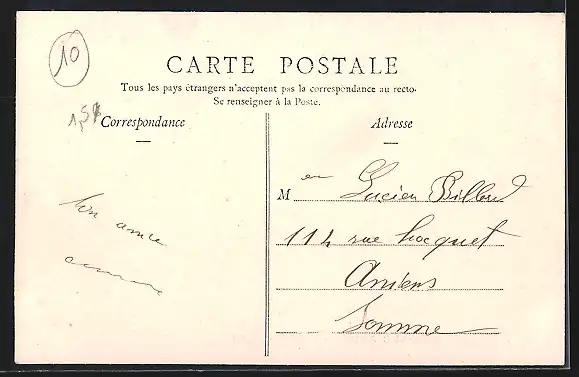 10
CARTE POSTALE
Tous les pays étrangers n'acceptent pas la correspondance au recto.
Se renseigner à la Poste.
1,50
Correspondance
Adresse
M en Lucien Billou
114 rue hocquet
Amiens
Somme
ton amie